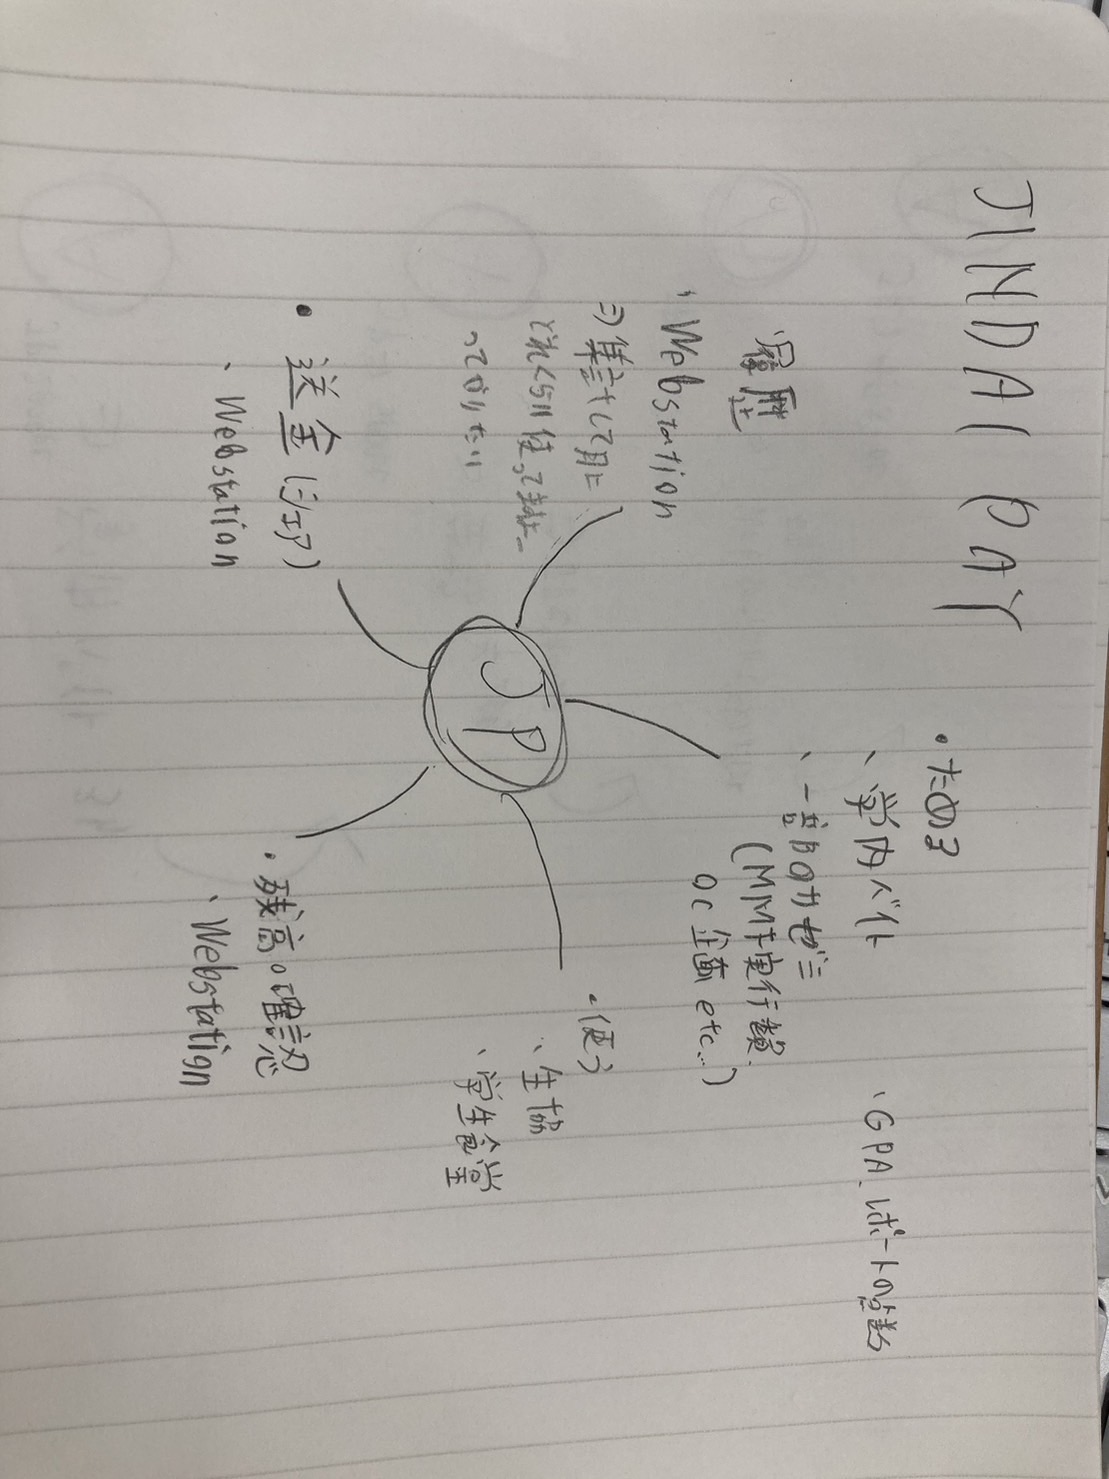 JINDAI PAY
・ためる
、学内バイト
、GPA、レポートの点数
、一部のゼミ
(MM 実行
OC 企画 etc...)
履歴
、Webstation
⇒集計して月に
どれくらい使ってますよー
ってやりたい
JP
・使う
、生協
、学生食堂
・送金(シェア)
、Webstation
・残高の確認
、Webstation